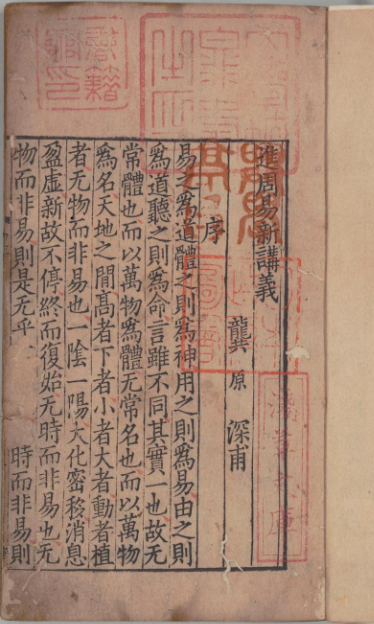 進周易新講義
龔原 深甫
序
易之為道體之則為神用之則為易由之則
為道聽之則為命言雖不同其實一也故无
常體也而以萬物為體无常名也而以萬物
為名天地之間髙者下者小者大者動者植
者无物而非易也一陰一陽大化密移消息
盈虛新故不停終而復始无時而非易也无
物而非易則是无乎 時而非易則